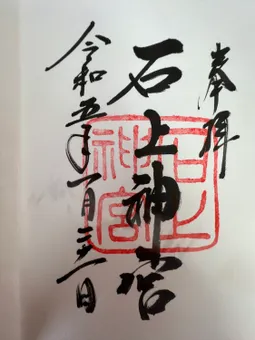 奉拝
石上神宮
令和五年一月三一日
石上
神宮